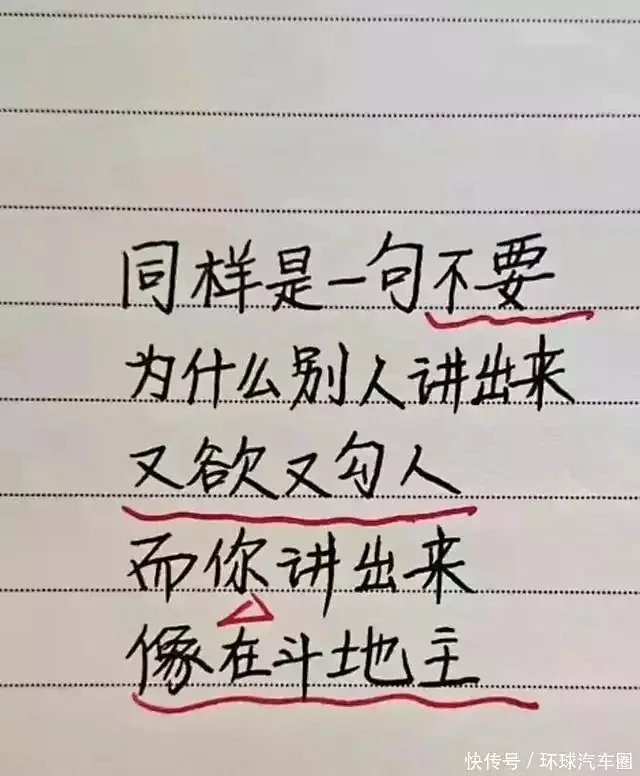 同样是一句不要
为什么别人讲出来
又欲又勾人
而你讲出来
像在斗地主
快传号／环球汽车圈